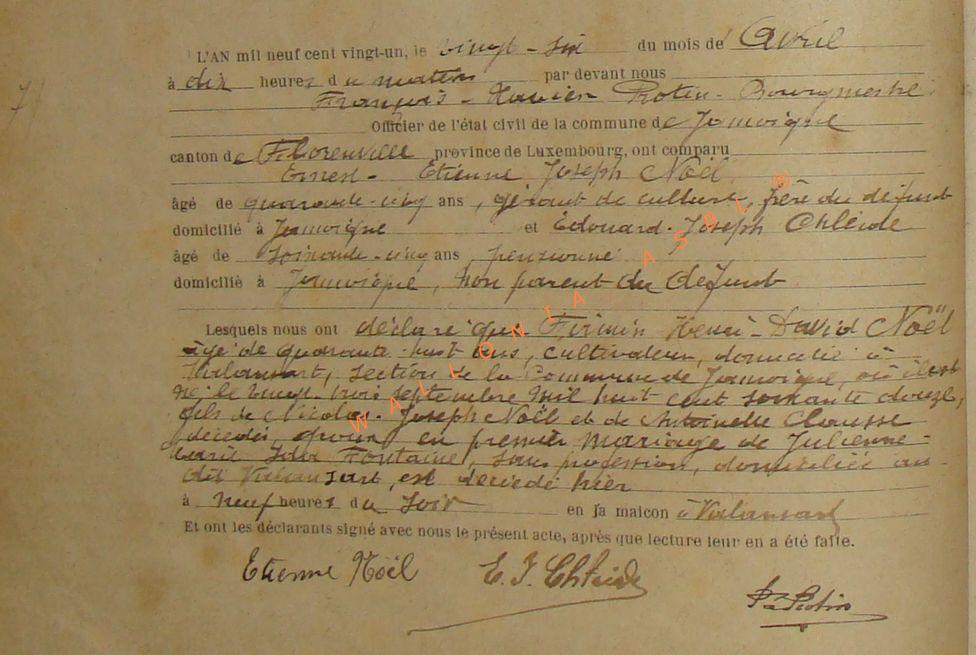 L'AN mil neuf cent vingt-un, le vingt-six du mois de Avril
à dix heures du matin par devant nous
François-Xavier Protin-Bourgmestre
Officier de l'état civil de la commune de Jamoigne
canton de Florenville province de Luxembourg, ont comparu
Ernest-Etienne Joseph Noël
âgé de quarante-cinq ans, gérant de culture, frère du défunt
domicilié à Jamoigne et Edouard-Joseph Chleide
âgé de soixante-cinq ans pensionné
domicilié à Jamoigne, non parent du défunt
Lesquels nous ont déclaré que Firmin Henri-David Noël
âgé de quarante-huit ans, cultivateur, domicilié à
Valansart, section de la Commune de Jamoigne, où il est
né, le vingt-trois septembre mil huit cent soixante douze,
fils de Nicolas-Joseph Noël et de Antoinette Clausse
décédés, époux en premier mariage de Julienne-
Marie Ida Fontaine, sans profession, domiciliée au
dit Valansart, est décédé hier
à neuf heures du soir en sa maison à Valansart
Et ont les déclarants signé avec nous le présent acte, après que lecture leur en a été faite.
Etienne Noël E. J. Chleide
Fx Protin
WALLONIA ASBL ®